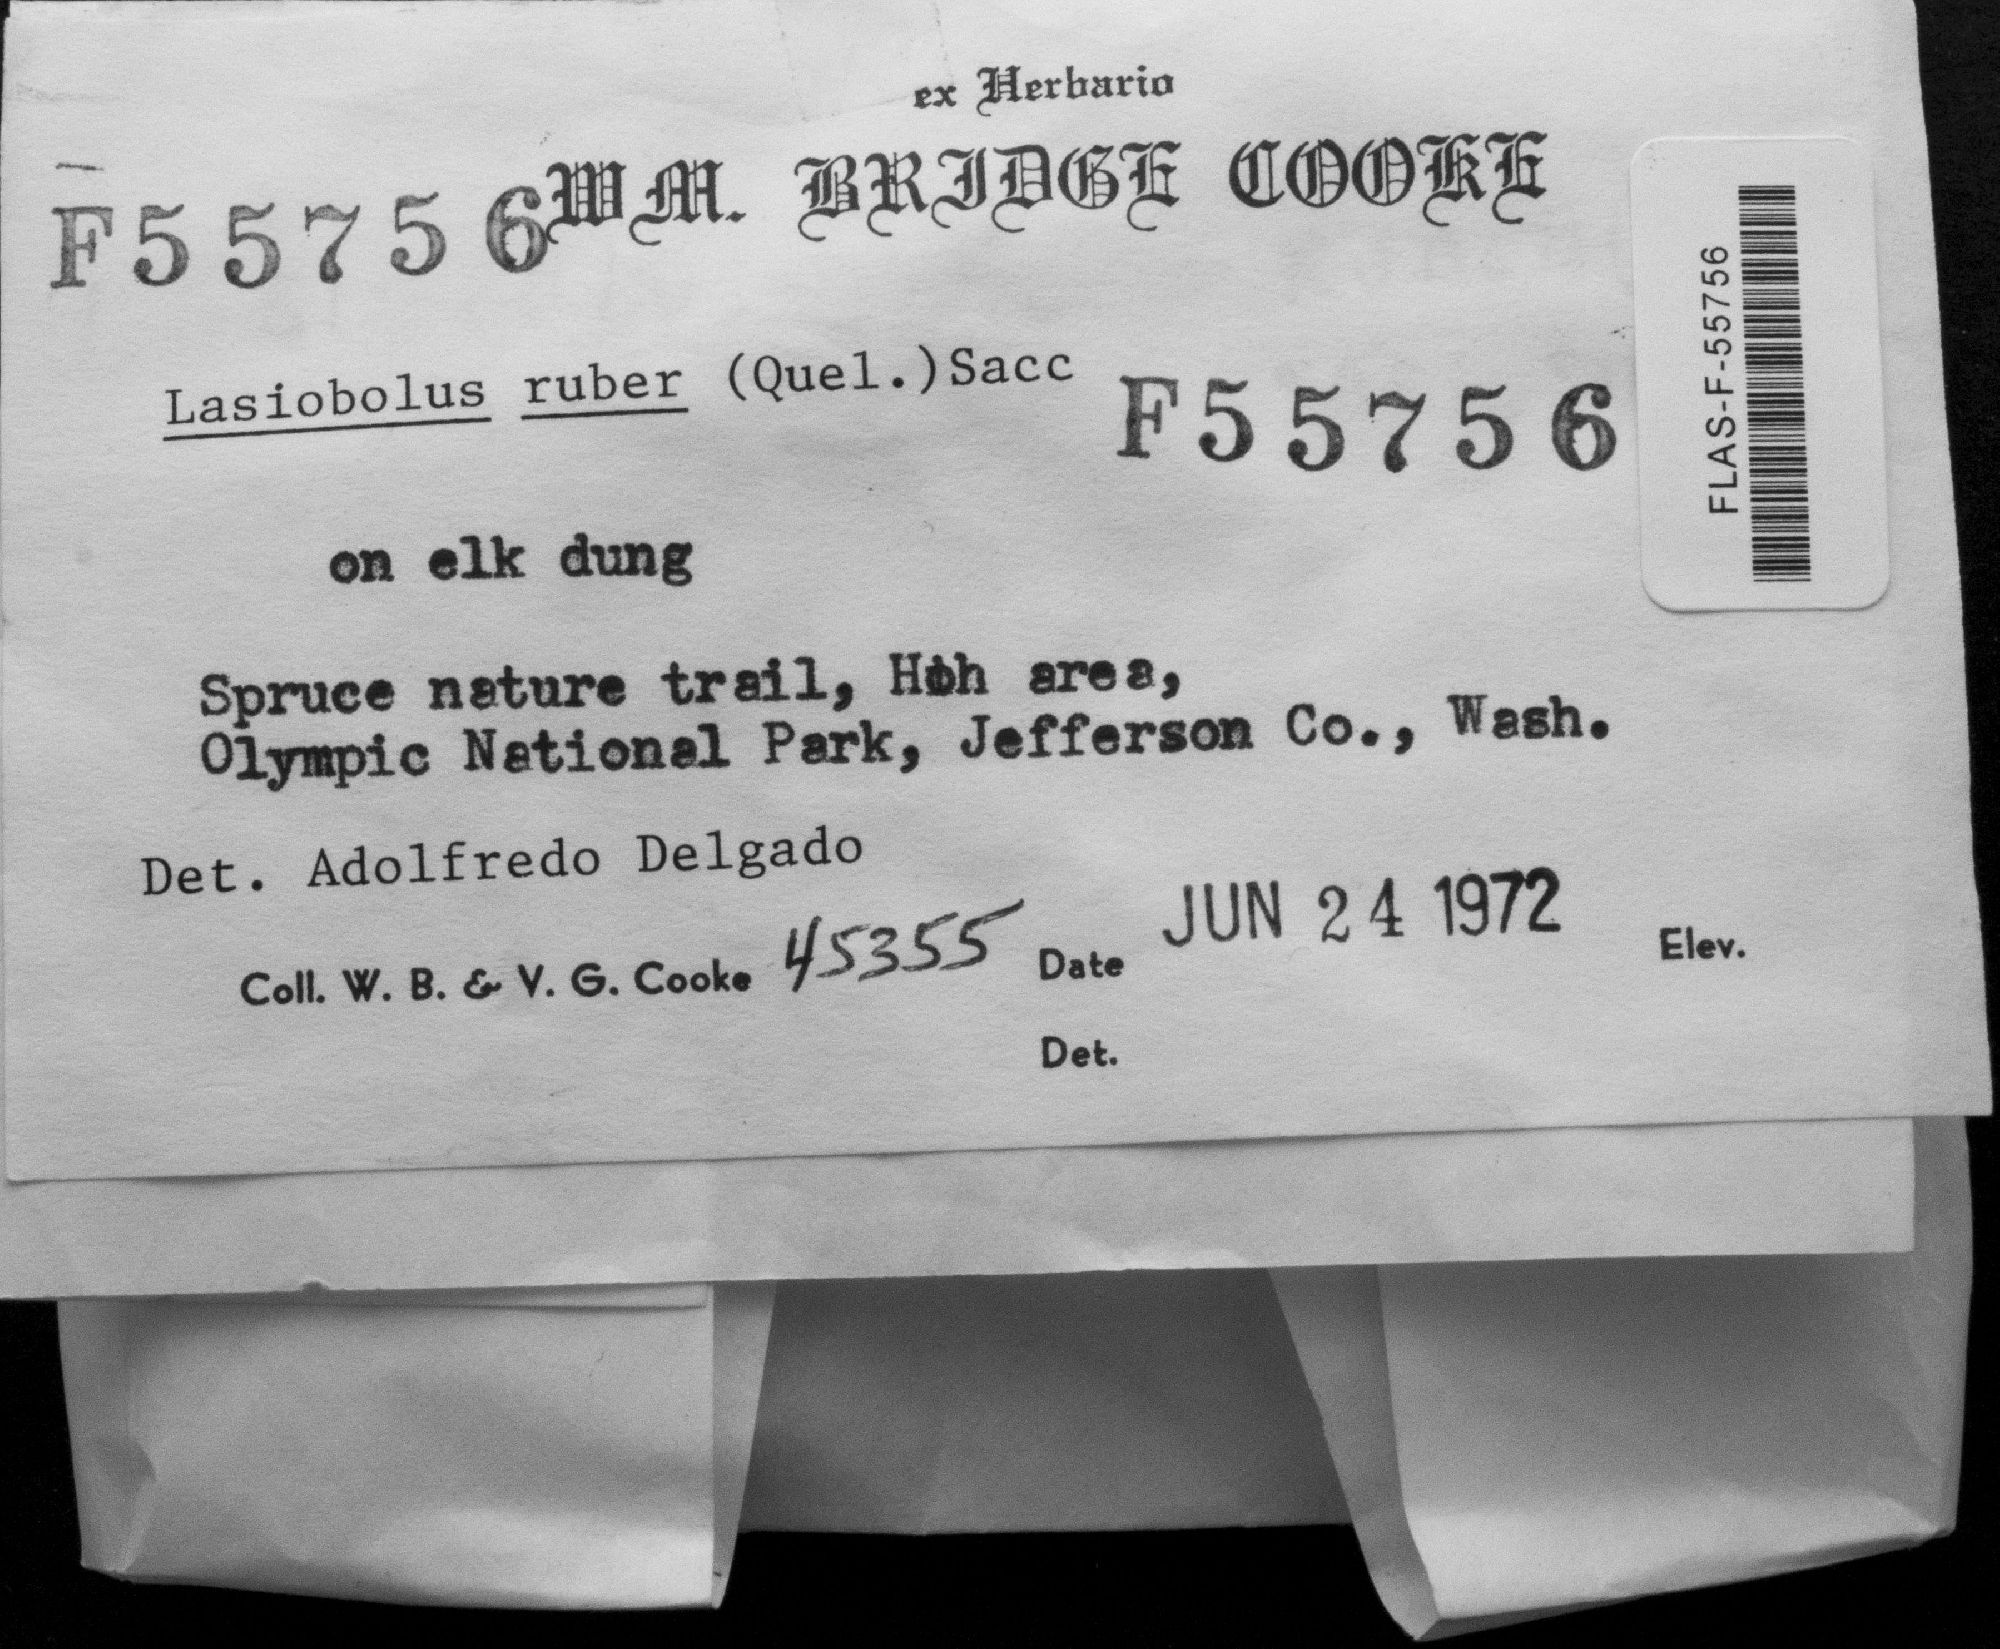 ex Herbario
WM. BRIDGE COOKE
F55756
Lasiobolus ruber (Quel.)Sacc
F55756
FLAS-F-55756
on elk dung
Spruce nature trail, Hoh area,
Olympic National Park, Jefferson Co., Wash.
Det. Adolfredo Delgado
Coll. W. B. & V. G. Cooke 45355 Date JUN 24 1972 Elev.
Det.